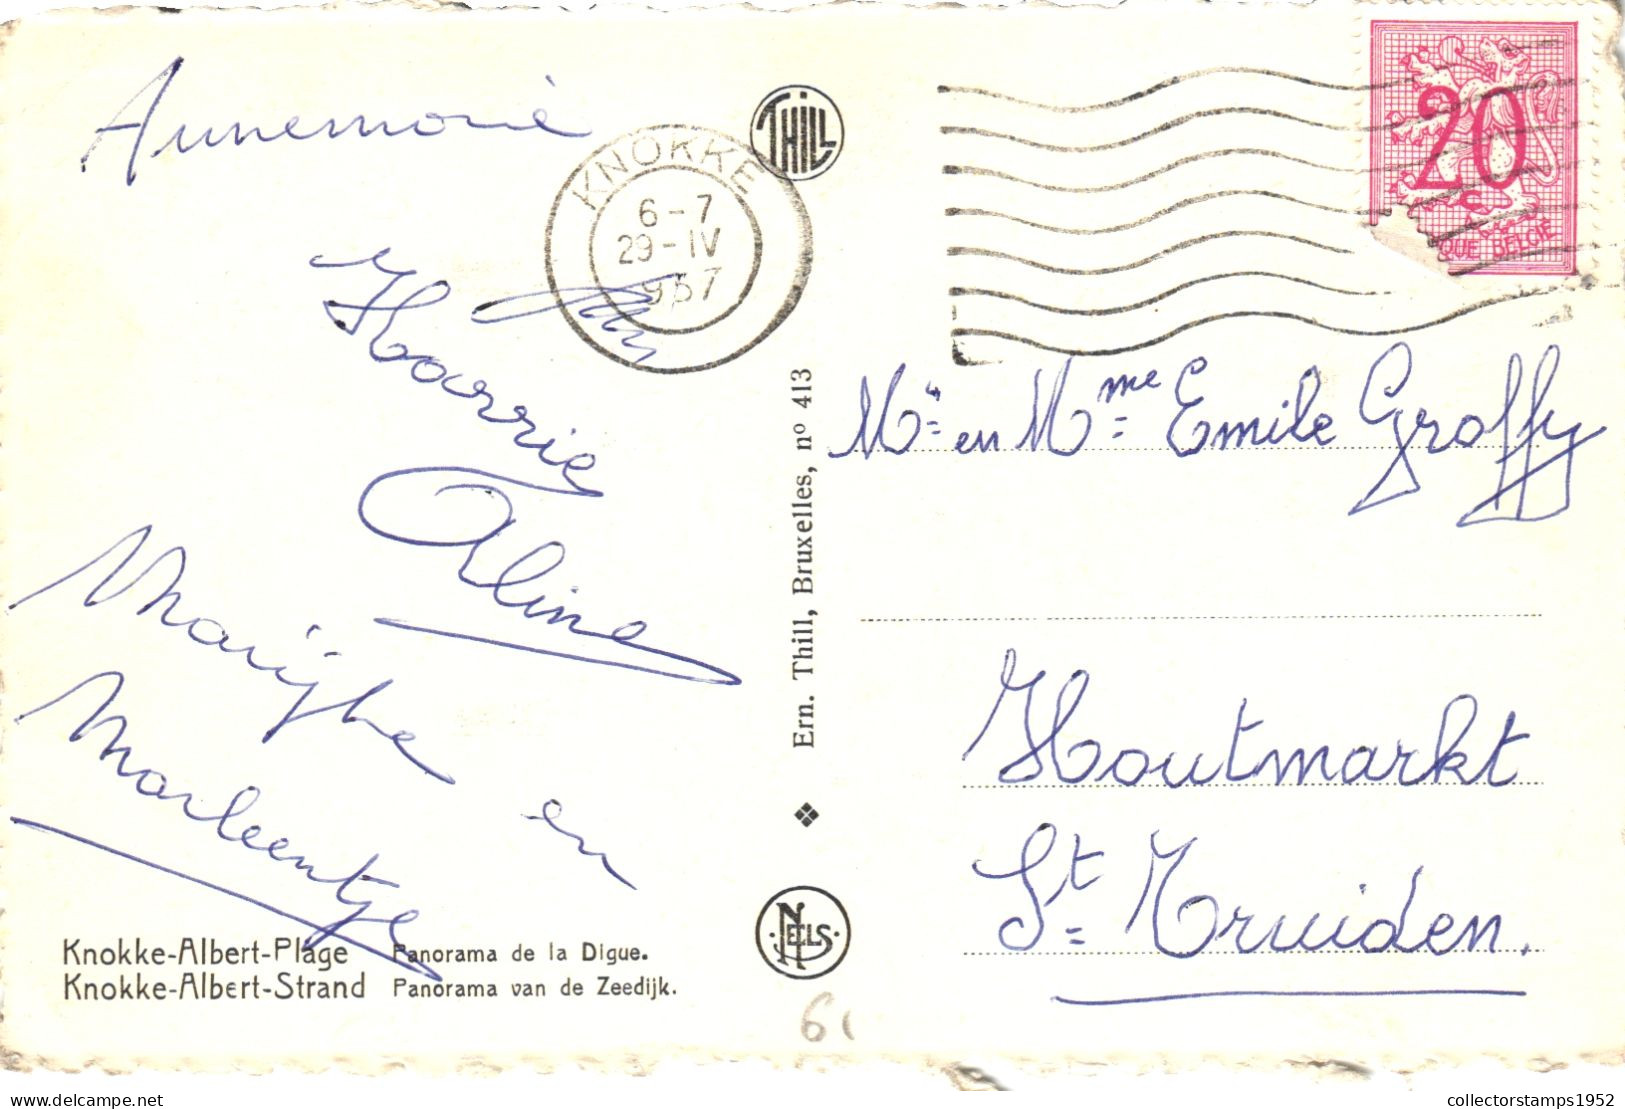 Annemorie
KNOKKE
6-7
29-IV
1957
THILL
20
QUE BELGIË
Harrie
Aline
Marijke en
Marleentje
Mr= en Mme= Emile Groffy
Houtmarkt
St= Truiden.
Ern. Thill, Bruxelles, nº 413
NELS
Knokke-Albert-Plage Panorama de la Digue.
Knokke-Albert-Strand Panorama van de Zeedijk.
collectorstamps1952